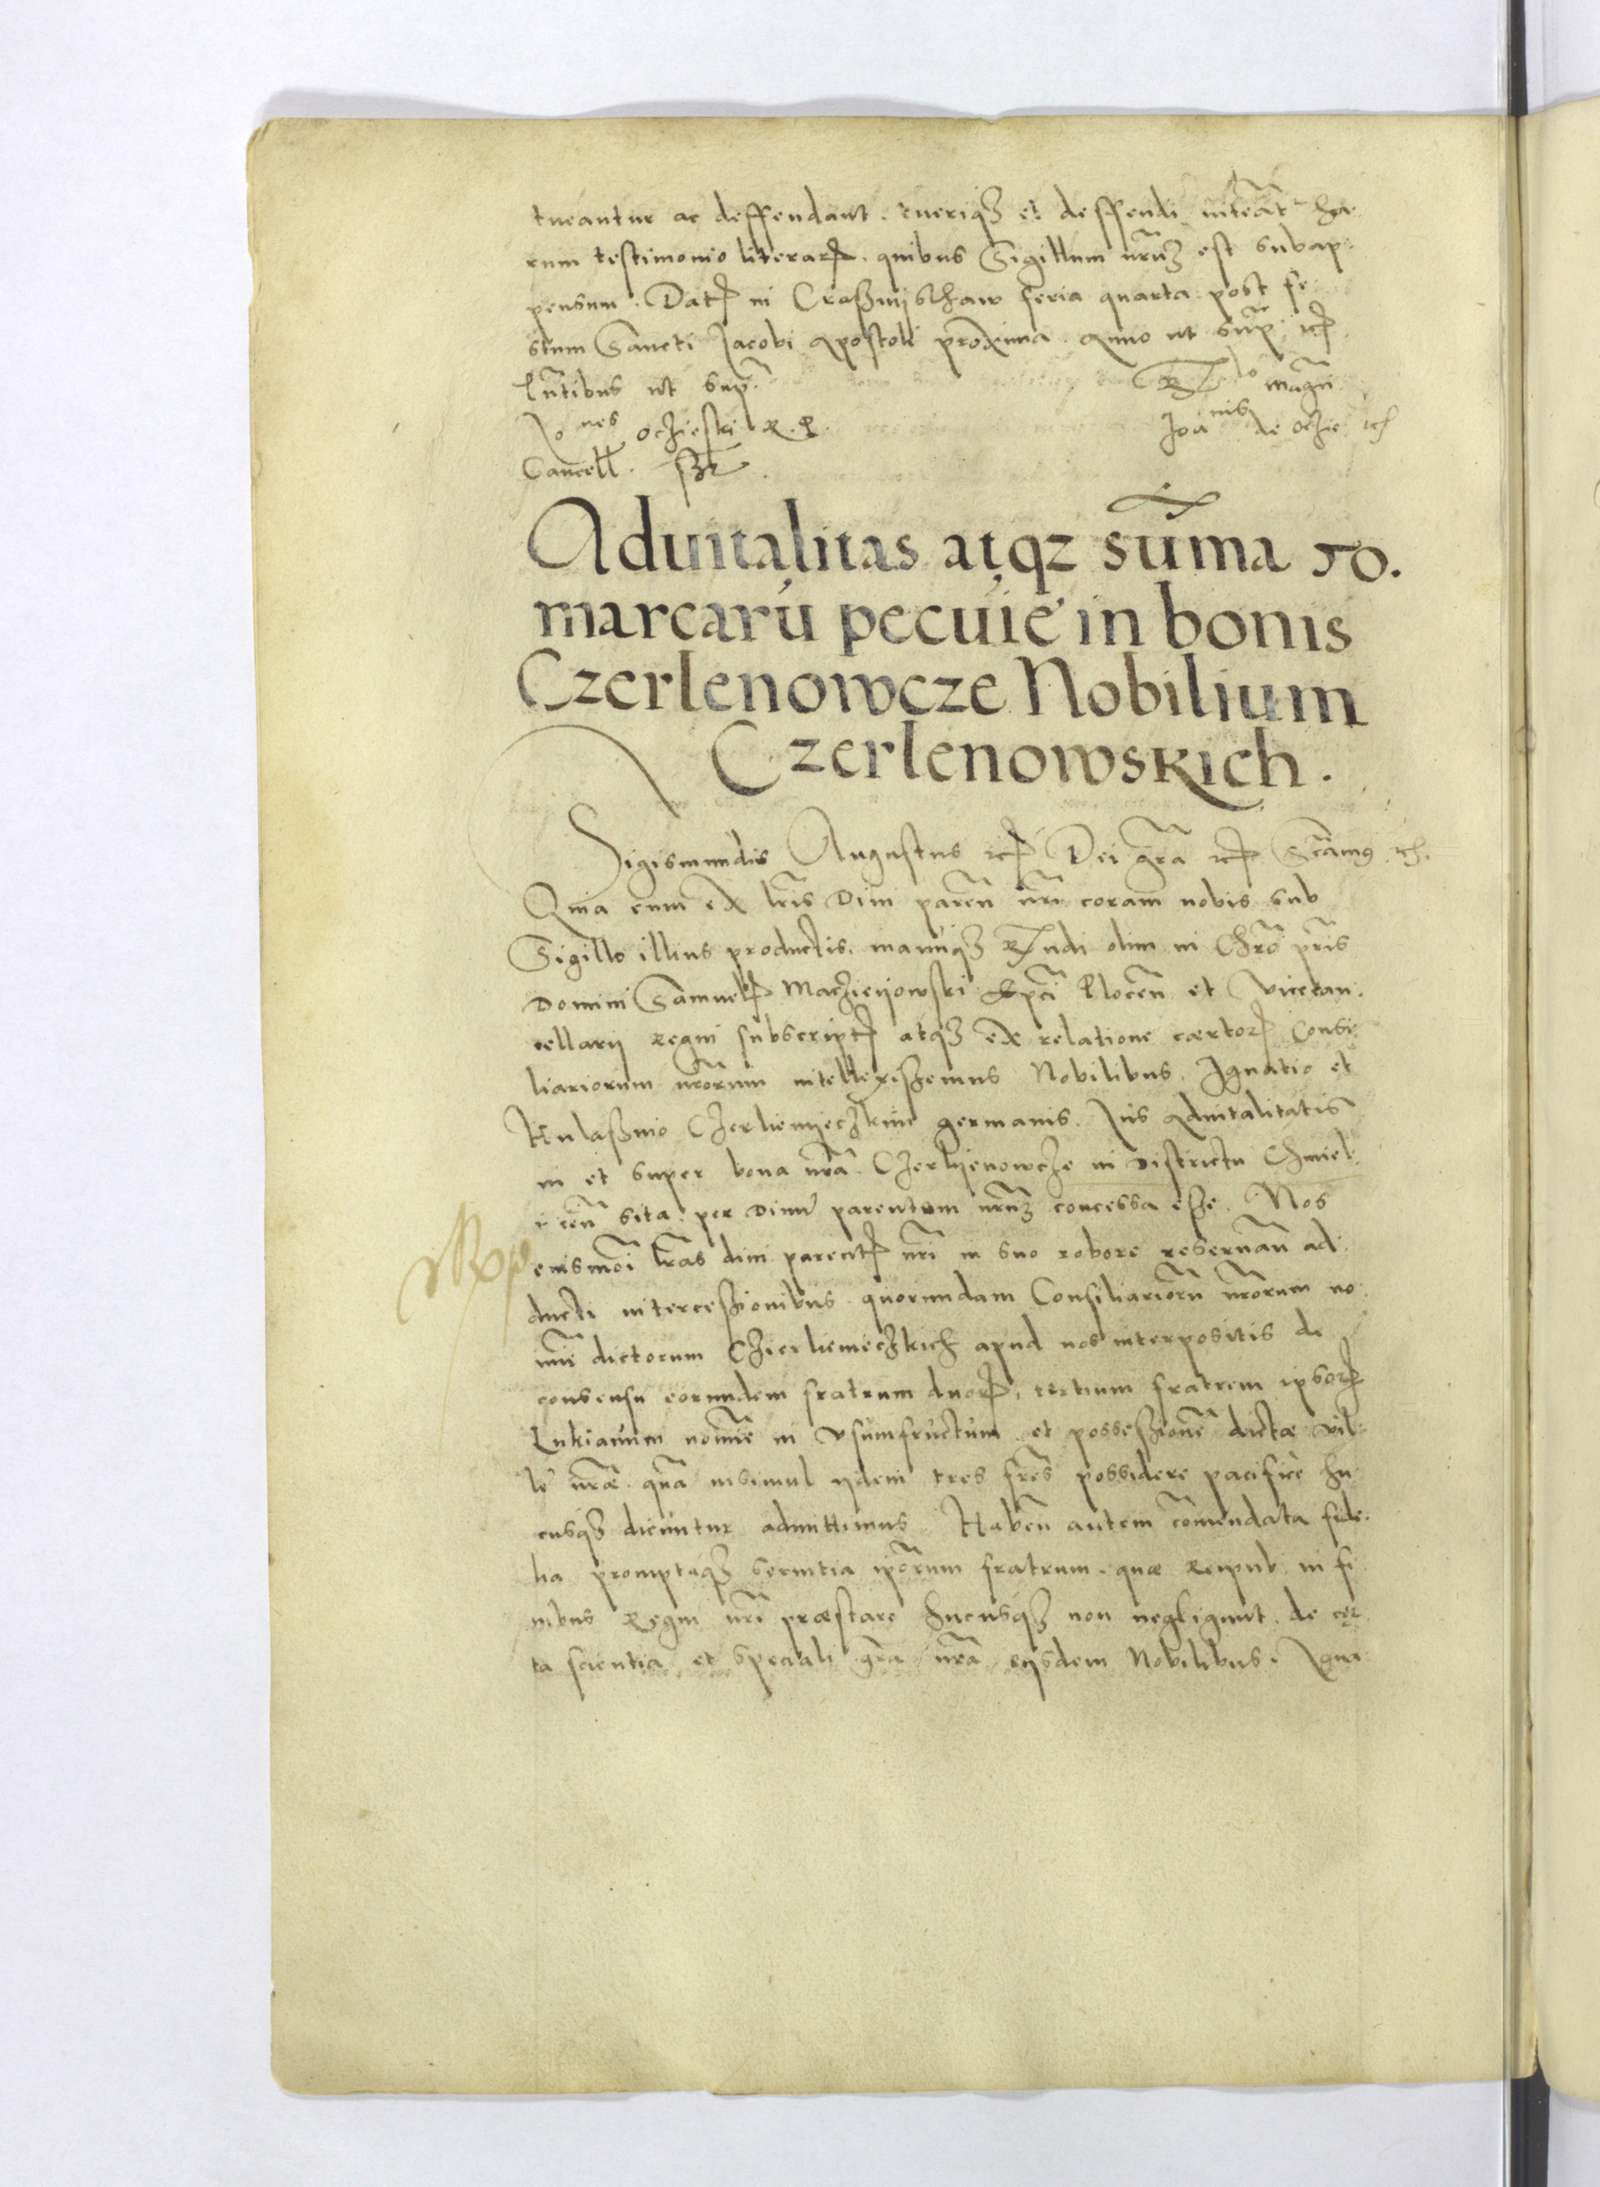 tueantur ac deffendant. tueriqꝫ et deffendi mādāt. ha
rum testimonio literarꝝ. quibus Sigillum nr̄uꝫ est subap
pensum. Datꝭ in Craßnijsthaw feria quarta post fe
stum Sancti Jacobi Apostoli proxima. Anno ut supᵃ. etc̄
Pn̄tibus ut supᵃ. Rlō magn̄i
Joⁿᵉˢ Oczieski R. P. Joaⁿⁱˢ de Oczie. etc̄
Cancell. sst
Aduitalitas atqz sūma 50.
marcarū pecuie in bonis
Czerlenowcze Nobilium
Czerlenowskich.
Sigismundus Augustus etc̄ Dei gr̄a etc̄ Sc̄amꝰ. etc̄.
Quia cum ex lr̄is Diui paren̄ nr̄i coram nobis sub
Sigillo illius productis. manuqꝫ Rn̄di olim in Chrō pr̄is
Domini Samuelꝭ Maczieijowski Ep̄i Plocen̄ et Vicecan.
cellarij Regni subscriptꝭ atqꝫ ex relatione certorꝝ Consi
liariorum nr̄orum intellexissemus Nobilibus. Ignatio et
Czerlienieczkim germanis. Jus aduitalitatis
in et super bona nr̄a Czerlijenowcze in Districtu Chmiel
icen̄ sita. per Diuū parentem nr̄uꝫ concessa esse. Nos
euismōi lr̄as diui parentꝭ nr̄i in suo robore reseruan̄ ad
ducti intercessionibus quorundam Consiliariorū nr̄orum no
īe dictorum Czierlienieczkich apud nos interpositis de
consensu eorundem fratrum duorꝝ. tertium fratrem ipsorꝝ
Lukianum nomīe in Vsumfructum et possessionē dictæ vil
le nr̄æ quā insimul ijdem tres fr̄es possidere pacifice hu
cusqꝫ dicuntur admittimus. Haben̄ autem cōmendata fide.
lia promptaqꝫ seruitia ip̄orum fratrum. quæ Reipub. in fi
nibus Regni nr̄i præstare hucusqꝫ non negligunt. de cer
ta scientia et speciali gr̄a nr̄a eijsdem Nobilibus. Igna